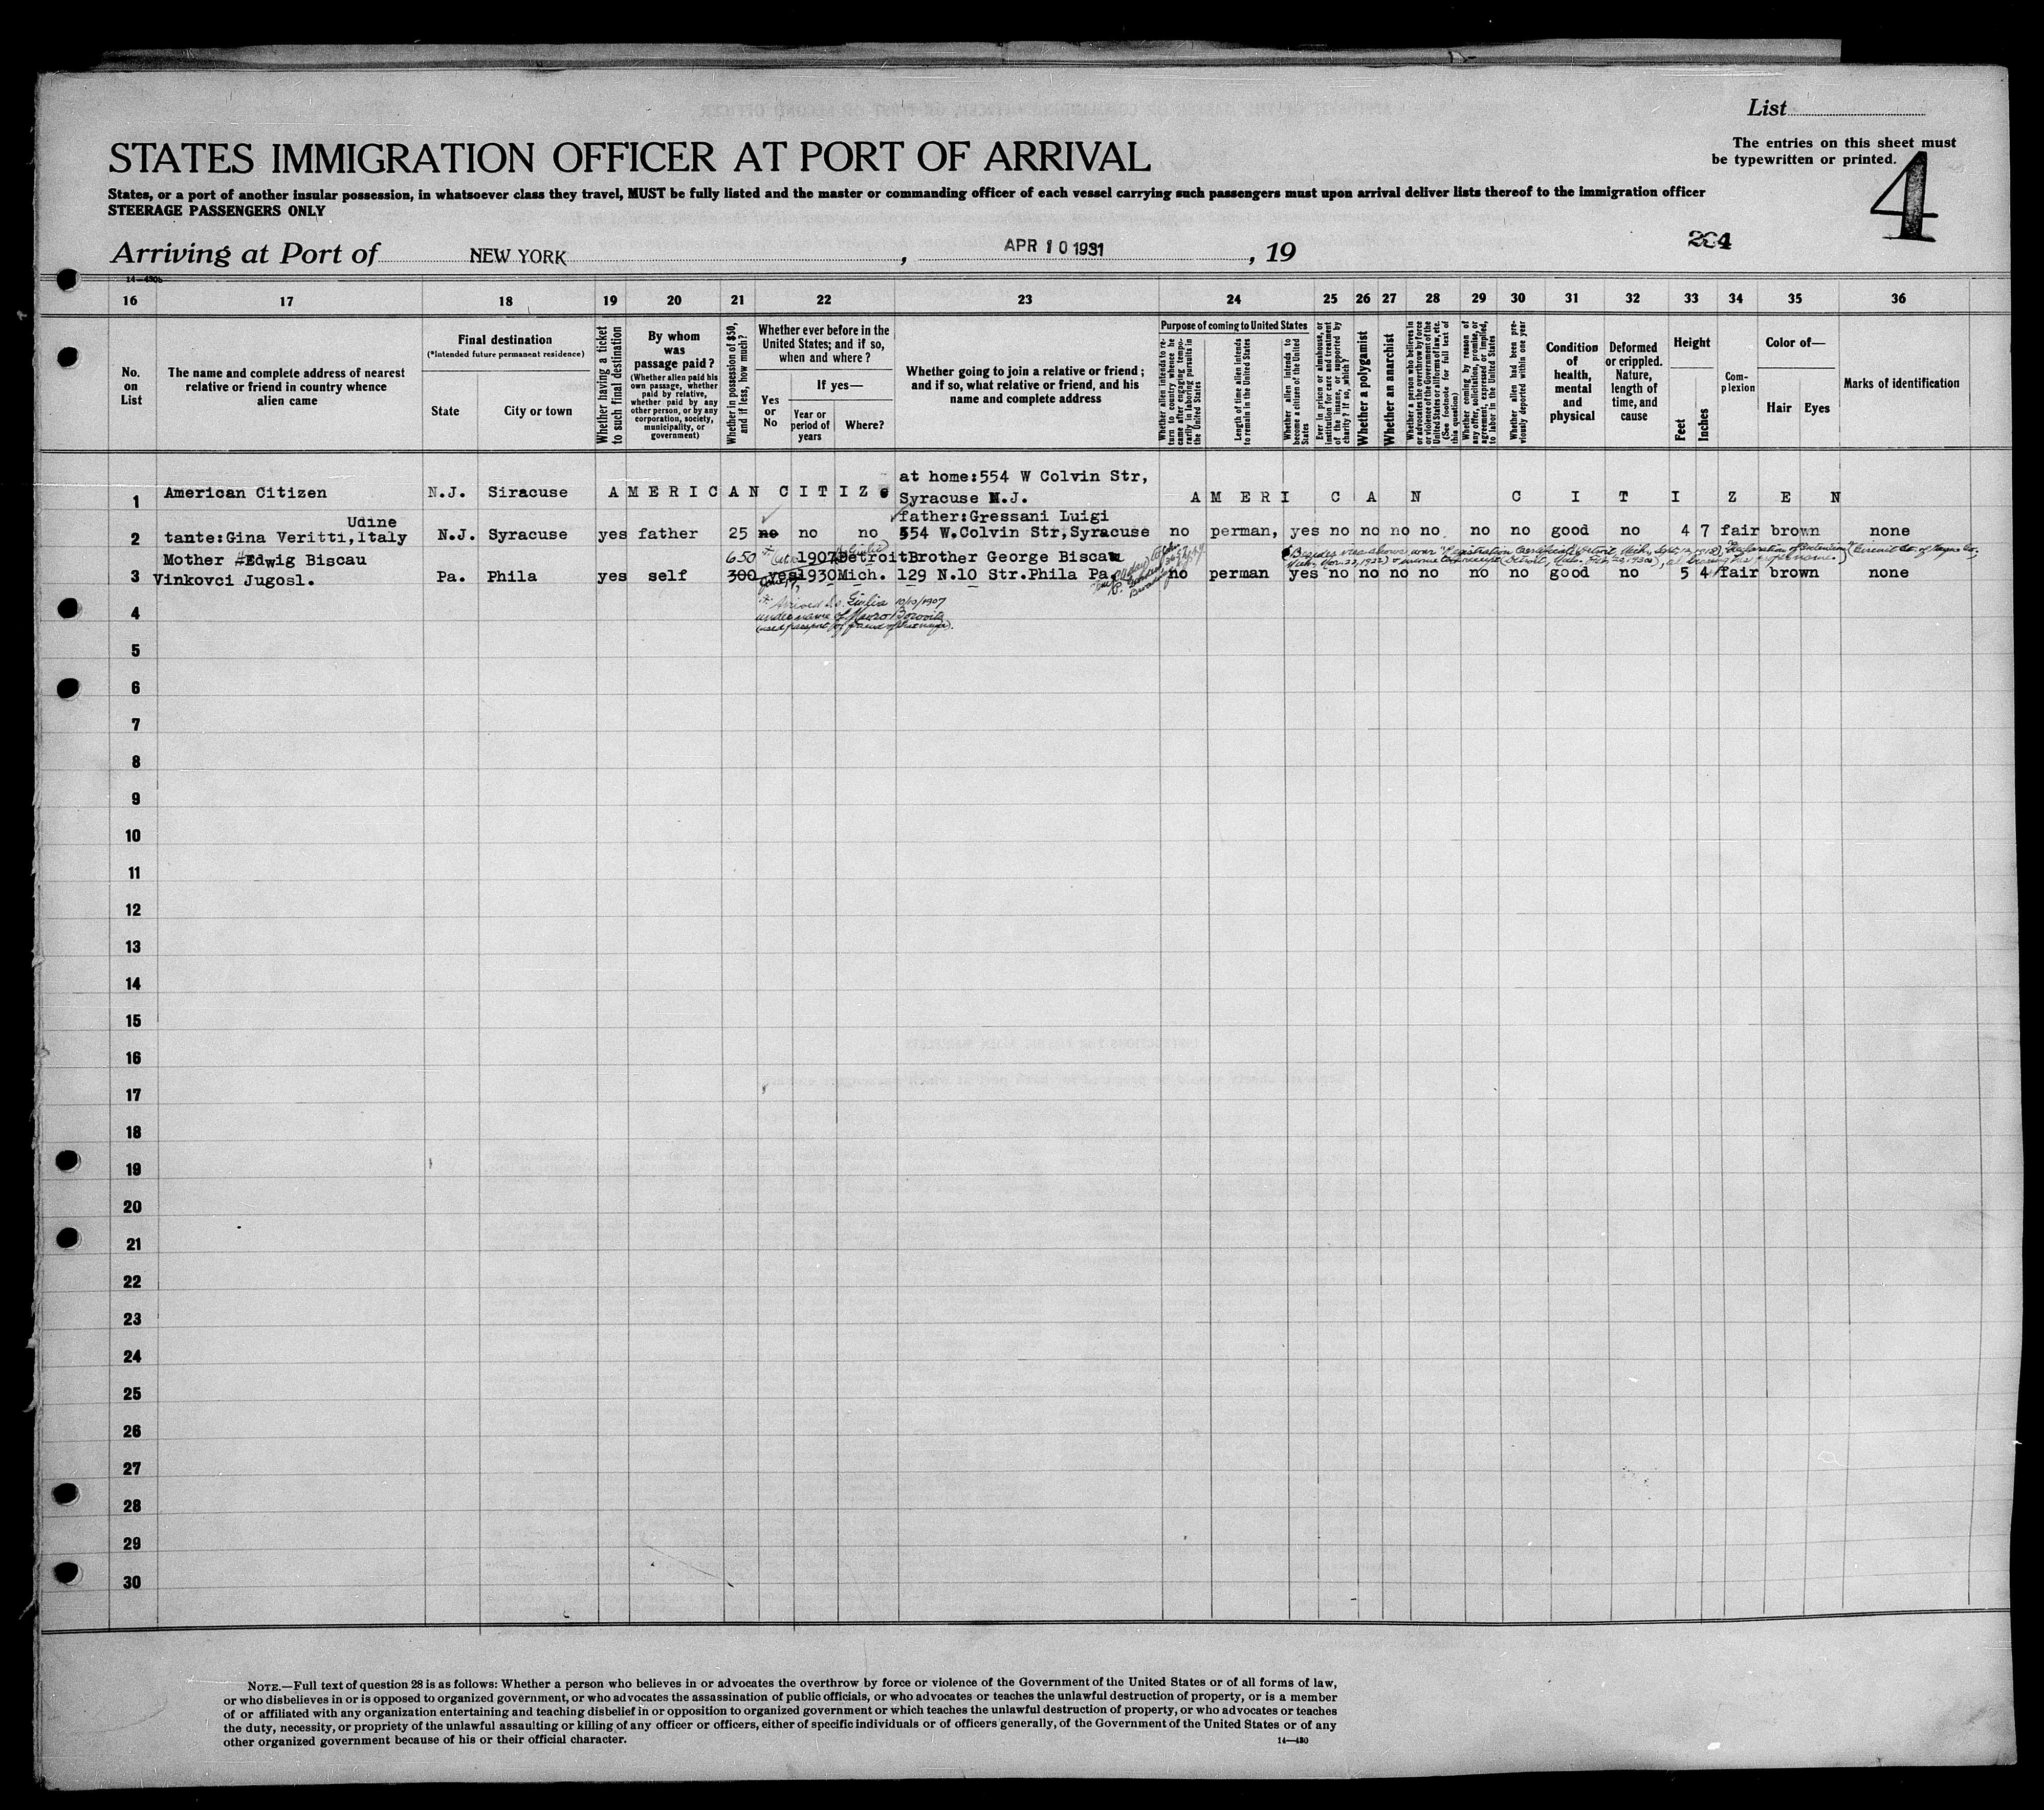 List
The entries on this sheet must
be typewritten or printed.
STATES IMMIGRATION OFFICER AT PORT OF ARRIVAL
4
States, or a port of another insular possession, in whatsoever class they travel, MUST be fully listed and the master or commanding officer of each vessel carrying such passengers must upon arrival deliver lists thereof to the immigration officer
STEERAGE PASSENGERS ONLY
Arriving at Port of NEW YORK, APR 10 1931, 19
204
14—430b
16 17 18 19 20 21 22 23 24 25 26 27 28 29 30 31 32 33 34 35 36
No. on List
The name and complete address of nearest relative or friend in country whence alien came
Final destination
(*Intended future permanent residence)
State
City or town
Whether having a ticket to such final destination
By whom was passage paid?
(Whether alien paid his own passage, whether paid by relative, whether paid by any other person, or by any corporation, society, municipality, or government)
Whether in possession of $50, and if less, how much?
Whether ever before in the United States; and if so, when and where?
Yes or No
If yes—
Year or period of years
Where?
Whether going to join a relative or friend; and if so, what relative or friend, and his name and complete address
Purpose of coming to United States
Whether alien intends to return to country whence he came after engaging temporarily in laboring pursuits in the United States
Length of time alien intends to remain in the United States
Whether alien intends to become a citizen of the United States
Ever in prison or almshouse, or institution for care and treatment of the insane, or supported by charity? If so, which?
Whether a polygamist
Whether an anarchist
Whether a person who believes in or advocates the overthrow by force or violence of the Government of the United States or all forms of law, etc. (See footnote for full text of this question)
Whether coming by reason of any offer, solicitation, promise, or agreement, expressed or implied, to labor in the United States
Whether alien had been previously deported within one year
Condition of health, mental and physical
Deformed or crippled. Nature, length of time, and cause
Height
Feet
Inches
Complexion
Color of—
Hair
Eyes
Marks of identification
at home:554 W Colvin Str,
1 American Citizen N.J. Siracuse A M E R I C A N C I T I Z Syracuse N.J. A M E R I C A N C I T I Z E N
Udine father:Gressani Luigi
2 tante:Gina Veritti,Italy N.J. Syracuse yes father 25 no no no 554 W.Colvin Str,Syracuse no perman, yes no no no no no no good no 4 7 fair brown none
Mother Edwig Biscau 650 1907 Detroit Brother George Biscau
3 Vinkovci Jugosl. Pa. Phila yes self 300 yes 1930 Mich. 129 N.10 Str.Phila Pa. no perman yes no no no no no no good no 5 4 fair brown none
Arrived S.S. Giulia 10/13/1907
4 under name of
5
6
7
8
9
10
11
12
13
14
15
16
17
18
19
20
21
22
23
24
25
26
27
28
29
30
NOTE.—Full text of question 28 is as follows: Whether a person who believes in or advocates the overthrow by force or violence of the Government of the United States or of all forms of law,
or who disbelieves in or is opposed to organized government, or who advocates the assassination of public officials, or who advocates or teaches the unlawful destruction of property, or is a member
of or affiliated with any organization entertaining and teaching disbelief in or opposition to organized government or which teaches the unlawful destruction of property, or who advocates or teaches
the duty, necessity, or propriety of the unlawful assaulting or killing of any officer or officers, either of specific individuals or of officers generally, of the Government of the United States or of any
other organized government because of his or their official character.
14—430